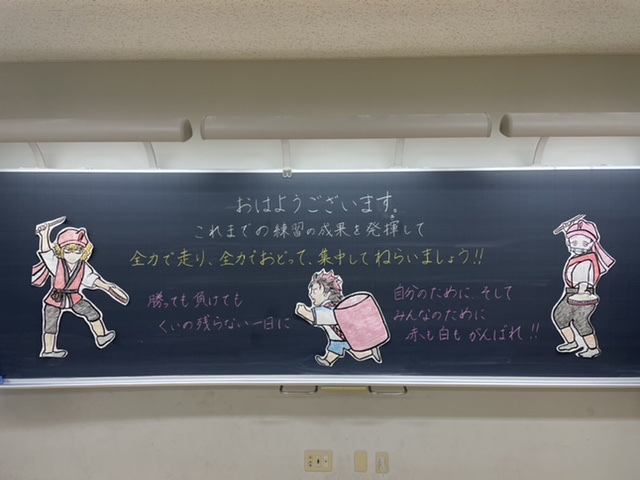 おはようございます。
これまでの練習の成果を発揮して
全力で走り、全力でおどって、集中してねらいましょう!!
勝っても負けても
くいの残らない一日に
自分のために、そして
みんなのために
赤も白もがんばれ!!